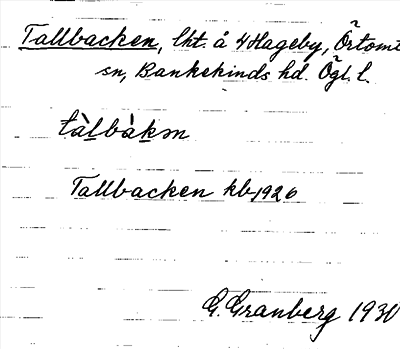 Tallbacken, lht. å 4 Hageby, Örtomt
sn, Bankekinds hd. Ögl. l.
tàlbàkən
Tallbacken kb 1926
G. Granberg 1930